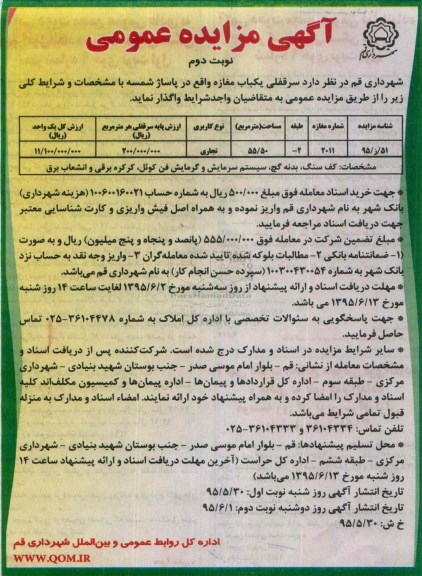 آگهی مزایده عمومی
نوبت دوم
شهرداری قم
شهرداری قم در نظر دارد سرقفلی یکباب مغازه واقع در پاساژ شمسه با مشخصات و شرایط کلی
زیر را از طریق مزایده عمومی به متقاضیان واجدشرایط واگذار نماید.
شناسه مزایده | شماره مغازه | طبقه | مساحت(مترمربع) | نوع کاربری | ارزش پایه سرقفلی هر مترمربع (ریال) | ارزش کل یک واحد (ریال)
۹۵/ر/۵۱ | 2011 | ۲- | ۵۵/۵۰ | تجاری | ۲۰۰/۰۰۰/۰۰۰ | ۱۱/۱۰۰/۰۰۰/۰۰۰
مشخصات: کف سنگ، بدنه گچ، سیستم سرمایش و گرمایش فن کوئل، کرکره برقی و انشعاب برق
* جهت خرید اسناد معامله فوق مبلغ ۵۰۰/۰۰۰ ریال به شماره حساب ۱۰۰۶۰۰۱۶۰۰۲۱ (هزینه شهرداری)
بانک شهر به نام شهرداری قم واریز نموده و به همراه اصل فیش واریزی و کارت شناسایی معتبر
جهت دریافت اسناد مراجعه فرمایید.
* مبلغ تضمین شرکت در معامله فوق ۵۵۵/۰۰۰/۰۰۰ (پانصد و پنجاه و پنج میلیون) ریال و به صورت
(۱- ضمانتنامه بانکی ۲- مطالبات بلوکه شده تایید شده معامله‌گران ۳- واریز وجه نقد به حساب نزد
بانک شهر به شماره ۱۰۰۳۰۰۴۳۰۰۵۴ (سپرده حسن انجام کار) به نام شهرداری قم می‌باشد.
* مهلت دریافت اسناد و ارائه پیشنهاد از روز سه‌شنبه مورخ ۱۳۹۵/۶/۲ لغایت ساعت ۱۴ روز شنبه
مورخ ۱۳۹۵/۶/۱۳ می باشد.
* جهت پاسخگویی به سئوالات تخصصی با اداره کل املاک به شماره ۳۶۱۰۴۴۷۸-۰۲۵ تماس
حاصل فرمایید.
* سایر شرایط مزایده در اسناد و مدارک درج شده است. شرکت‌کننده پس از دریافت اسناد و
مشخصات معامله از نشانی: قم - بلوار امام موسی صدر - جنب بوستان شهید بنیادی - شهرداری
مرکزی - طبقه سوم - اداره کل قراردادها و پیمان‌ها - اداره پیمان‌ها و کمیسیون مکلف‌اند کلیه
اسناد و مدارک را امضا کرده و به همراه پیشنهاد خود ارائه نمایند. امضاء اسناد و مدارک به منزله
قبول تمامی شرایط می‌باشد.
تلفن تماس: ۳۶۱۰۴۳۳۴ و ۳۶۱۰۴۳۳۳-۰۲۵
* محل تسلیم پیشنهادها: قم - بلوار امام موسی صدر - جنب بوستان شهید بنیادی - شهرداری
مرکزی - طبقه ششم - اداره کل حراست (آخرین مهلت دریافت اسناد و ارائه پیشنهاد ساعت ۱۴
روز شنبه مورخ ۱۳۹۵/۶/۱۳ می‌باشد)
تاریخ انتشار آگهی روز شنبه نوبت اول: ۹۵/۵/۳۰
تاریخ انتشار آگهی روز دوشنبه نوبت دوم: ۹۵/۶/۱
خ ش: ۹۵/۵/۳۰
اداره کل روابط عمومی و بین‌الملل شهرداری قم
WWW.QOM.IR